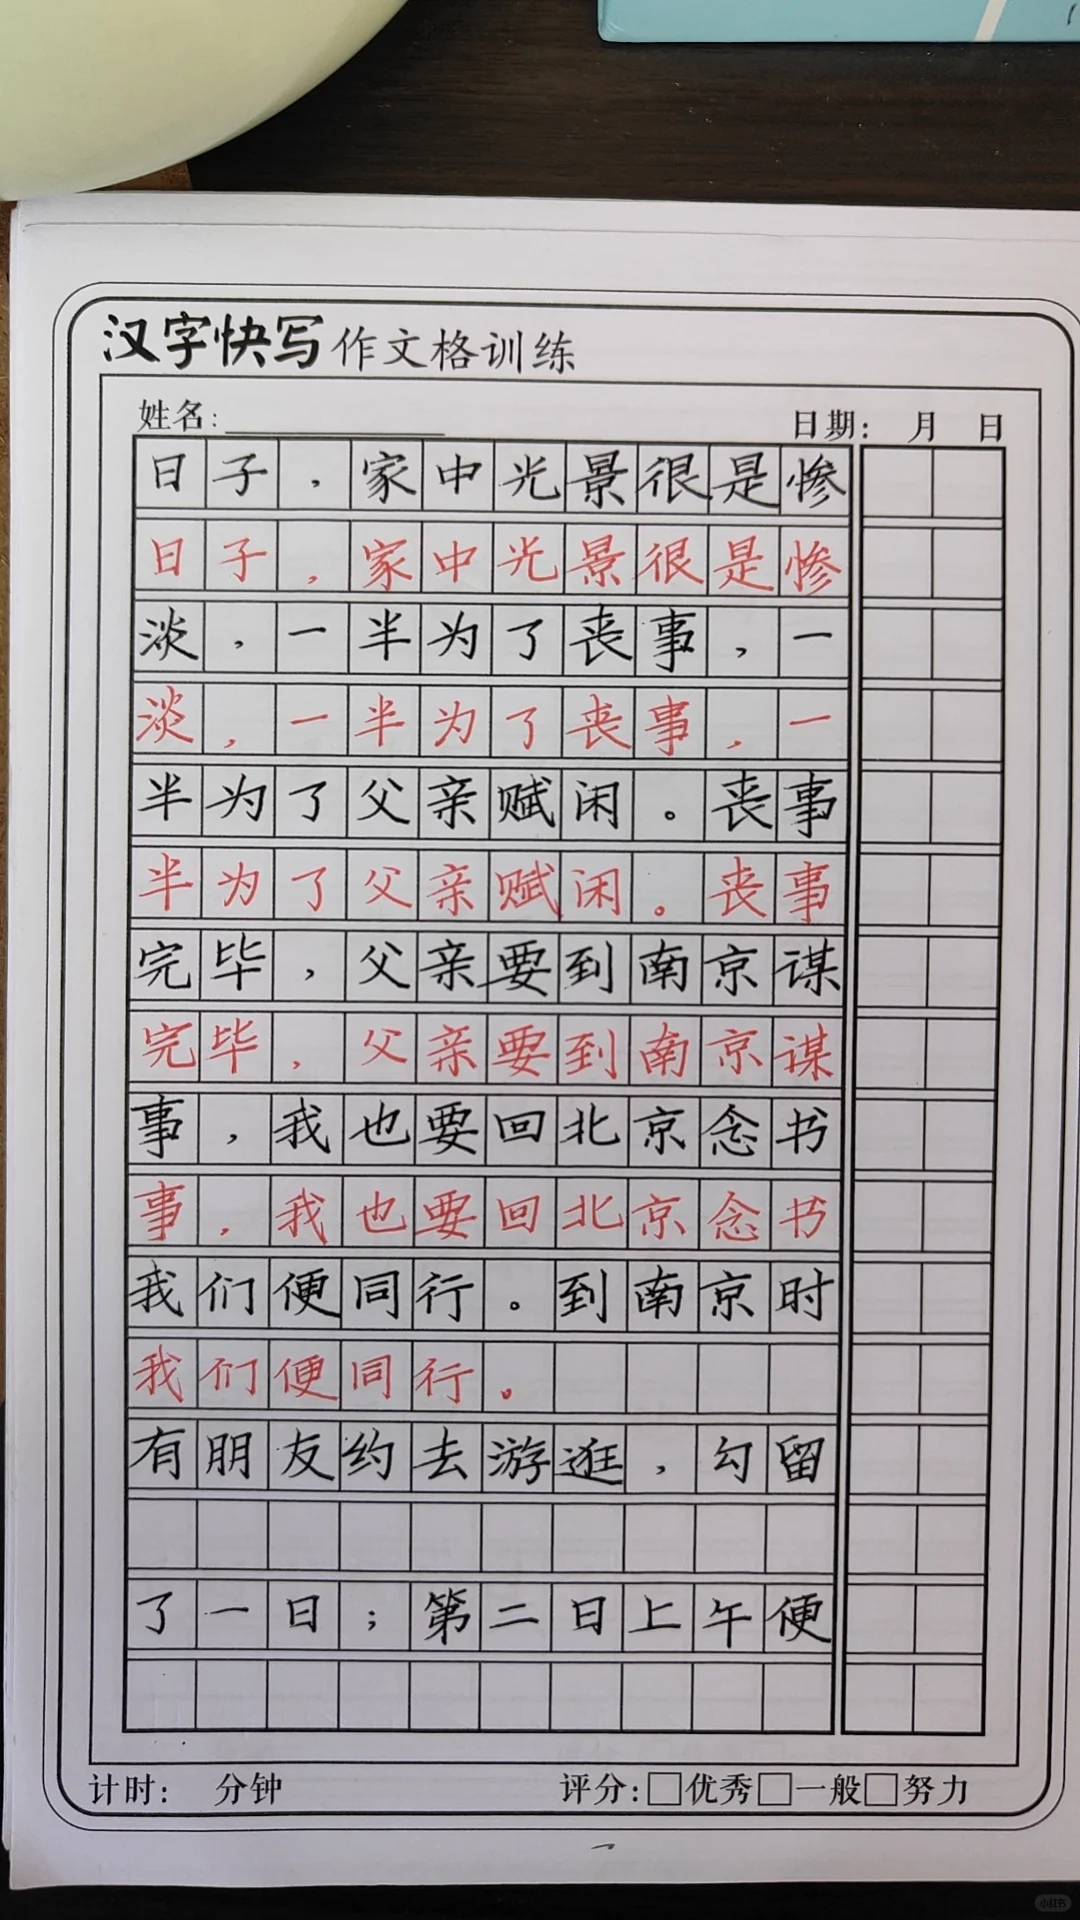 汉字快写作文格训练
姓名: 日期: 月 日
日子,家中光景很是惨
日子,家中光景很是惨
淡,一半为了丧事,一
淡,一半为了丧事,一
半为了父亲赋闲。丧事
半为了父亲赋闲。丧事
完毕,父亲要到南京谋
完毕,父亲要到南京谋
事,我也要回北京念书
事,我也要回北京念书
我们便同行。到南京时
我们便同行。
有朋友约去游逛,勾留
了一日;第二日上午便
计时: 分钟 评分:□优秀□一般□努力
小红书